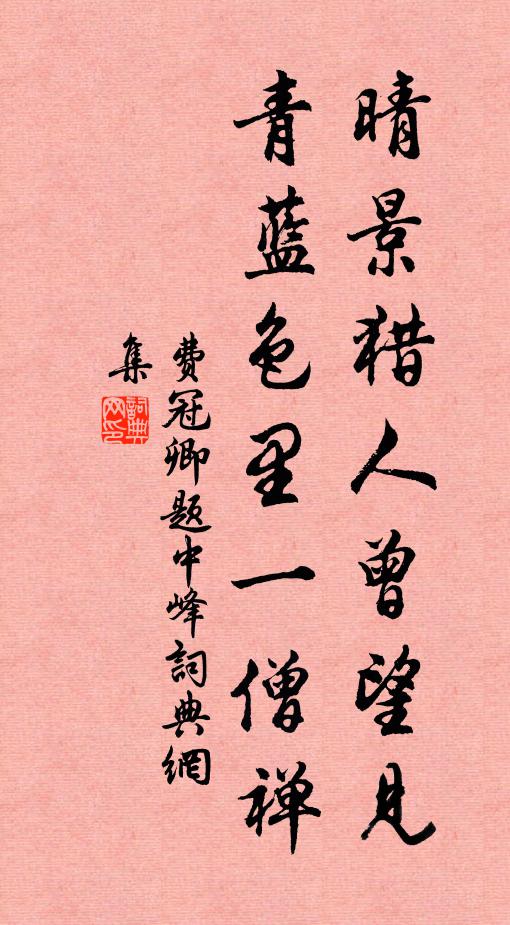 晴景猎人曾望见
青蓝色里一僧禅
费冠卿题中峰詞典網
集
詞典
网印